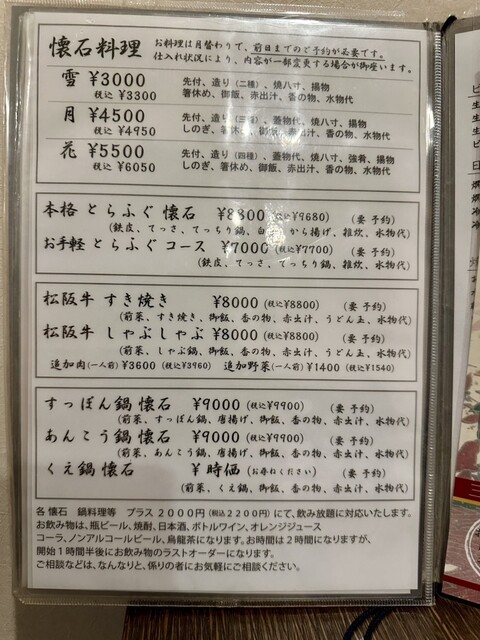 懐石料理
お料理は月替わりで、前日までのご予約が必要です。
仕入れ状況により、内容が一部変更する場合が御座います。
雪 ¥3000
税込 ¥3300
先付、造り(二種)、焼八寸、揚物
箸休め、御飯、赤出汁、香の物、水物代
月 ¥4500
税込 ¥4950
先付、造り(三種)、蓋物代、焼八寸、揚物
しのぎ、箸休め、御飯、赤出汁、香の物、水物代
花 ¥5500
税込 ¥6050
先付、造り(四種)、蓋物代、焼八寸、強肴、揚物
しのぎ、箸休め、御飯、赤出汁、香の物、水物代
本格 とらふぐ 懐石 ¥8800 (税込¥9680) (要 予約)
(鉄皮、てっさ、てっちり鍋、から揚げ、雑炊、水物代)
お手軽 とらふぐ コース ¥7000 (税込¥7700)
(鉄皮、てっさ、てっちり鍋、雑炊、水物代)
松阪牛 すき焼き ¥8000 (税込¥8800) (要 予約)
(前菜、すき焼き、御飯、香の物、赤出汁、うどん玉、水物代)
松阪牛 しゃぶしゃぶ ¥8000 (税込¥8800) (要 予約)
(前菜、しゃぶ鍋、御飯、香の物、赤出汁、うどん玉、水物代)
追加肉(一人前) ¥3600 (税込¥3960) 追加野菜(一人前) ¥1400 (税込¥1540)
すっぽん鍋 懐石 ¥9000 (税込¥9900) (要 予約)
(前菜、すっぽん鍋、唐揚げ、御飯、香の物、赤出汁、水物代)
あんこう鍋 懐石 ¥9000 (税込¥9900) (要 予約)
(前菜、あんこう鍋、唐揚げ、御飯、香の物、赤出汁、水物代)
くえ鍋 懐石 ¥ 時価 (お尋ねください) (要 予約)
(前菜、くえ鍋、御飯、香の物、赤出汁、水物代)
各 懐石 鍋料理等 プラス 2000円(税込2200円)にて、飲み放題に対応いたします。
お飲み物は、瓶ビール、焼酎、日本酒、ボトルワイン、オレンジジュース
コーラ、ノンアルコールビール、烏龍茶になります。お時間は2時間になりますが、
開始1時間半後にお飲み物のラストオーダーになります。
ご相談などは、なんなりと、係りの者にお気軽にご相談ください。